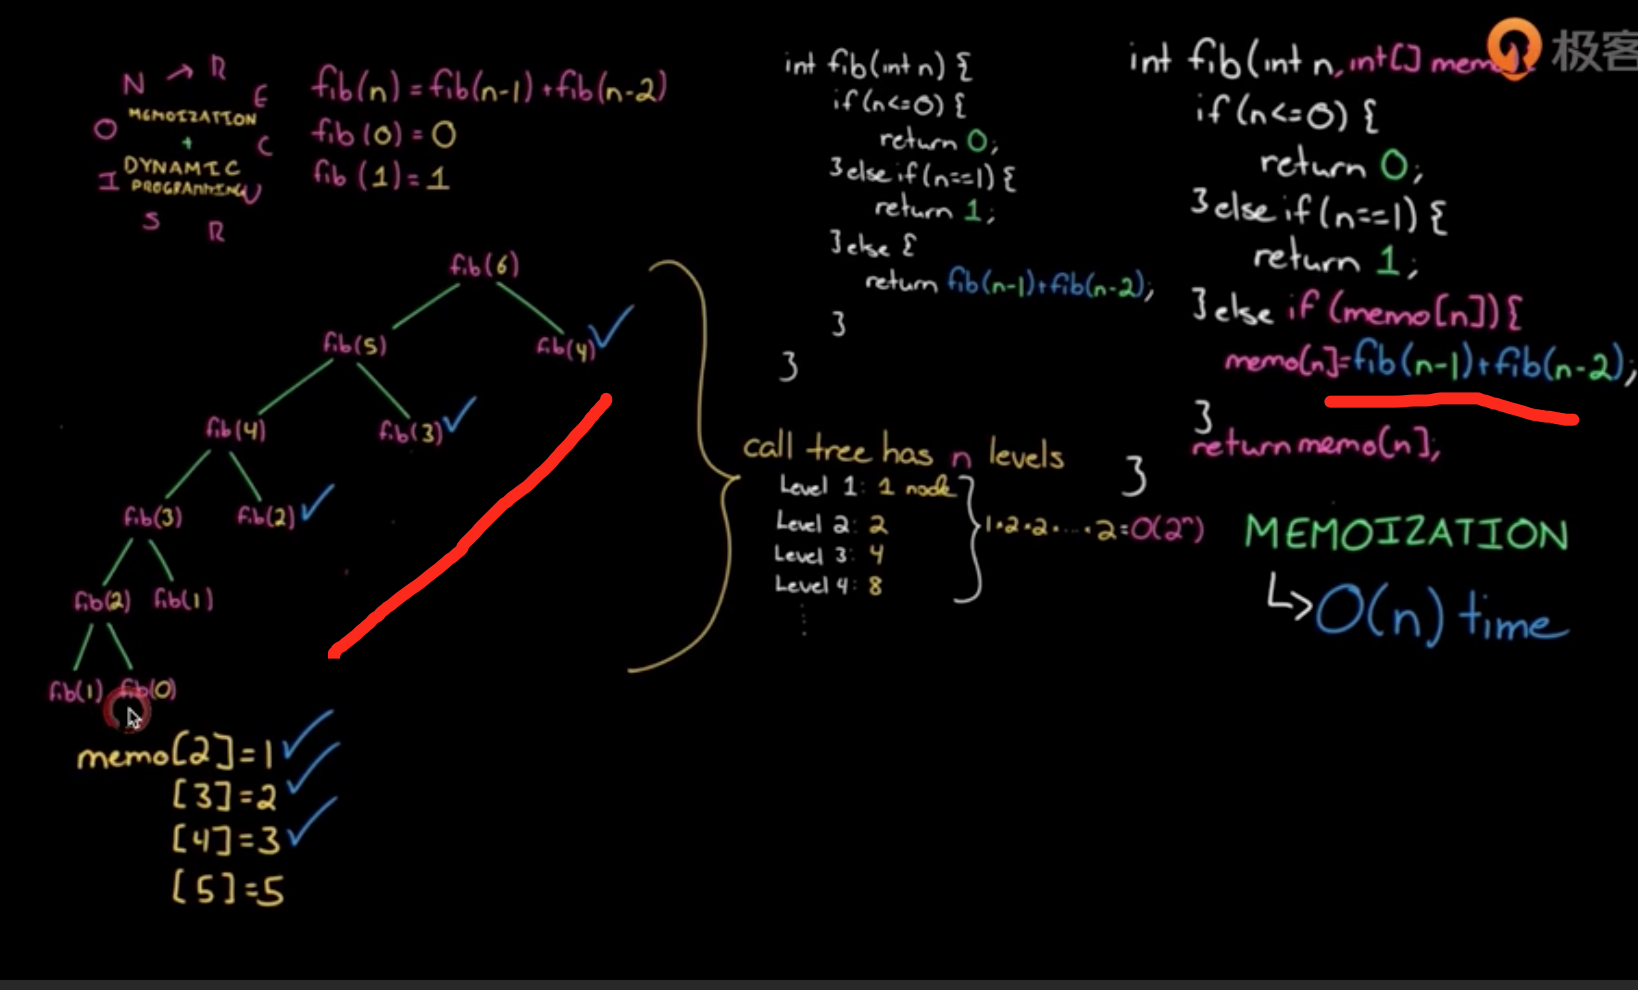 N → R E C U R S I O N
MEMOIZATION
+
DYNAMIC
PROGRAMMING
fib(n) = fib(n-1) + fib(n-2)
fib(0) = 0
fib(1) = 1
fib(6)
fib(5) fib(4)
fib(4) fib(3)
fib(3) fib(2)
fib(2) fib(1)
fib(1) fib(0)
memo[2]=1
[3]=2
[4]=3
[5]=5
int fib(int n) {
if(n<=0) {
return 0;
}else if(n==1) {
return 1;
}else {
return fib(n-1)+fib(n-2);
}
}
call tree has n levels
Level 1: 1 node
Level 2: 2
Level 3: 4
Level 4: 8
1·2·2·...·2=O(2ⁿ)
极客
int fib(int n, int[] memo
if(n<=0) {
return 0;
}else if(n==1) {
return 1;
}else if (memo[n]) {
memo[n]=fib(n-1)+fib(n-2);
}
return memo[n];
}
MEMOIZATION
↳O(n) time